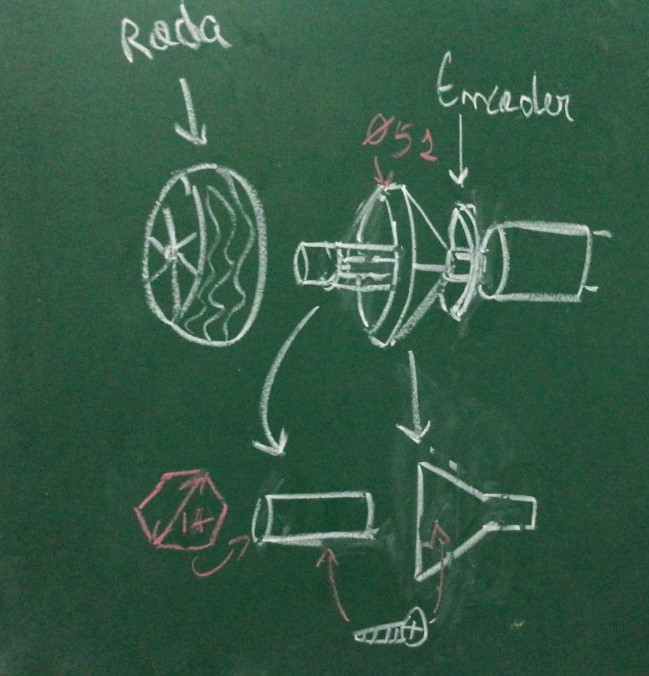 Roda
Encoder
Ø 52
14